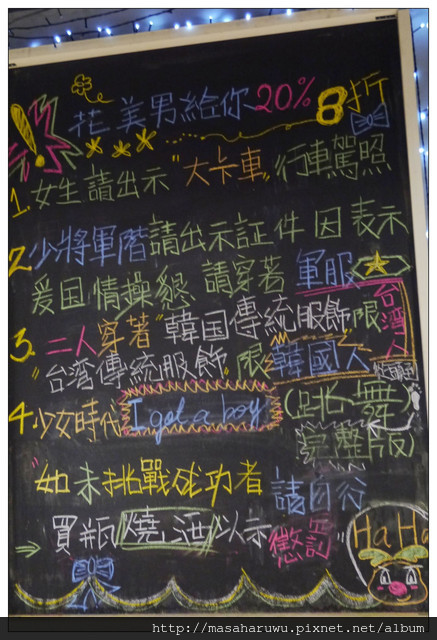 花美男給你20% 8折
1. 女生請出示"大卡車"行車駕照
2. 少將軍階請出示証件因表示
爱国情操懇請穿著軍服
3. 二人穿著"韓国傳統服飾限台湾人
"台湾傳統服飾"限韓國人
4. 少女時代 I got a boy (跳舞
完整版)
"如未挑戰成功者請自行
⇒買瓶燒酒以示懲罰"
HaHa
http://masaharuwu.pixnet.net/album